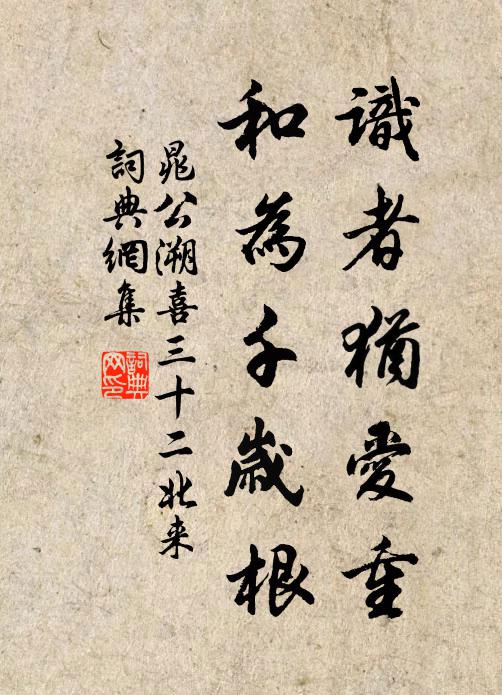 識者猶愛重
和為千歲根
晁公溯喜三十二北来
詞典網集
詞典
网印